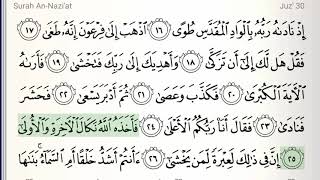 Surah An-Nazi'at Juz' 30
إِذْ نَادَىٰهُ رَبُّهُۥ بِٱلْوَادِ ٱلْمُقَدَّسِ طُوًى ١٦ ٱذْهَبْ إِلَىٰ فِرْعَوْنَ إِنَّهُۥ طَغَىٰ ١٧
فَقُلْ هَل لَّكَ إِلَىٰٓ أَن تَزَكَّىٰ ١٨ وَأَهْدِيَكَ إِلَىٰ رَبِّكَ فَتَخْشَىٰ ١٩ فَأَرَىٰهُ
ٱلْءَايَةَ ٱلْكُبْرَىٰ ٢٠ فَكَذَّبَ وَعَصَىٰ ٢١ ثُمَّ أَدْبَرَ يَسْعَىٰ ٢٢ فَحَشَرَ
فَنَادَىٰ ٢٣ فَقَالَ أَنَا۠ رَبُّكُمُ ٱلْأَعْلَىٰ ٢٤ فَأَخَذَهُ ٱللَّهُ نَكَالَ ٱلْءَاخِرَةِ وَٱلْأُولَىٰٓ
٢٥ إِنَّ فِى ذَٰلِكَ لَعِبْرَةً لِّمَن يَخْشَىٰٓ ٢٦ ءَأَنتُمْ أَشَدُّ خَلْقًا أَمِ ٱلسَّمَآءُ ۚ بَنَىٰهَا